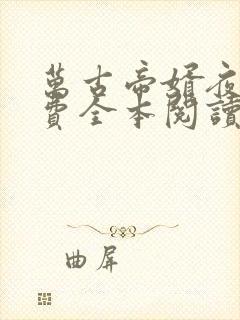 萬古帝婿夜
費全本閱讀
曲屏